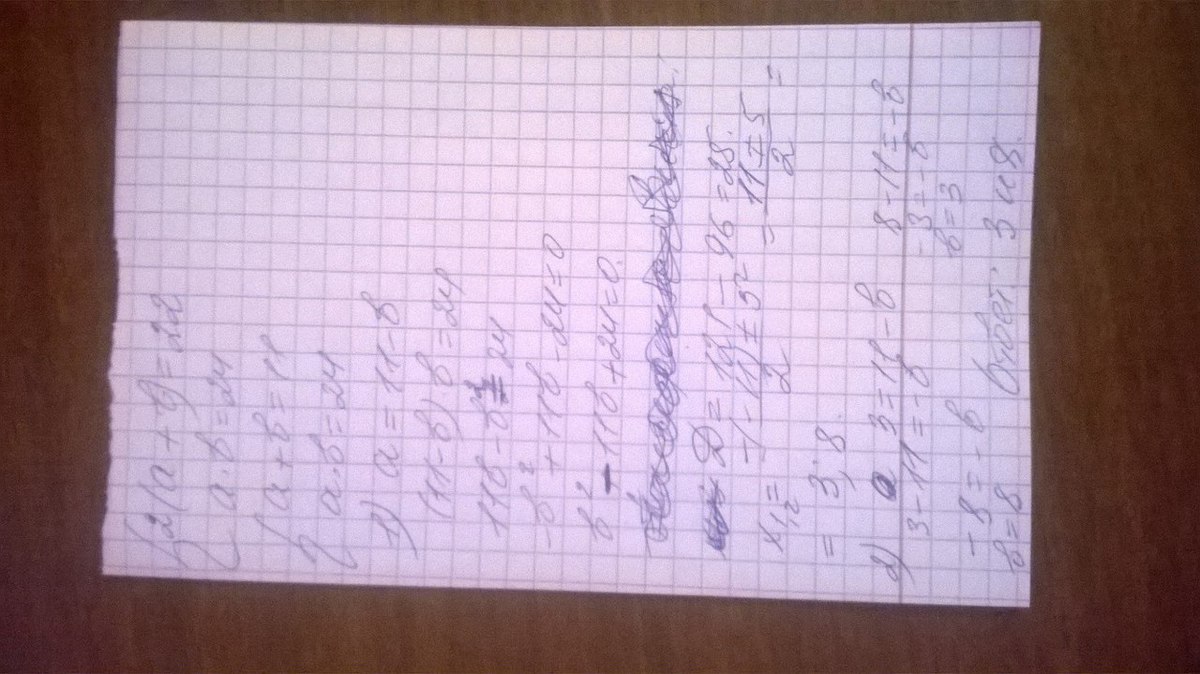 {2(a + b) = 22
a · b = 24
{a + b = 11
a · b = 24
1) a = 11 - b
(11 - b) · b = 24
11b - b² = 24
-b² + 11b - 24 = 0
b² - 11b + 24 = 0.
D = 121 - 96 = 25.
x₁,₂ = -(-11) ± 5² / 2 = 11 ± 5 / 2 =
= 3; 8.
2) 3 = 11 - b 8 - 11 = -b
3 - 11 = -b -3 = -b
-8 = -b b = 3
b = 8 Ответ: 3 и 8.